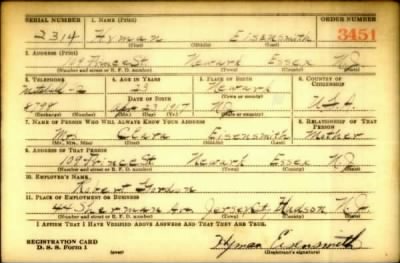 SERIAL NUMBER 1. NAME (Print) ORDER NUMBER
2314 Hyman Eisensmith 3451
(First) (Middle) (Last)
2. ADDRESS (Print)
109 Prince St Newark Essex NJ
(Number and street or R. F. D. number) (Town) (County) (State)
3. TELEPHONE 4. AGE IN YEARS 5. PLACE OF BIRTH 6. COUNTRY OF CITIZENSHIP
Mitchell-2 23 Newark
DATE OF BIRTH (Town or county)
8798 NJ
(Exchange) (Number) (Mo.) (Day) (Yr.) (State or country)
7. NAME OF PERSON WHO WILL ALWAYS KNOW YOUR ADDRESS 8. RELATIONSHIP OF THAT PERSON
Mrs Clara Eisensmith Mother
(Mr., Mrs., Miss) (First) (Middle) (Last)
9. ADDRESS OF THAT PERSON
109 Prince St Newark Essex NJ
(Number and street or R. F. D. number) (Town) (County) (State)
10. EMPLOYER'S NAME
Robert Gordon
11. PLACE OF EMPLOYMENT OR BUSINESS
44 Sherman Av Jersey City Hudson N.J.
(Number and street or R. F. D. number) (Town) (County) (State)
I AFFIRM THAT I HAVE VERIFIED ABOVE ANSWERS AND THAT THEY ARE TRUE.
REGISTRATION CARD
D. S. S. Form 1 (over) Hyman Eisensmith
(Registrant's signature)